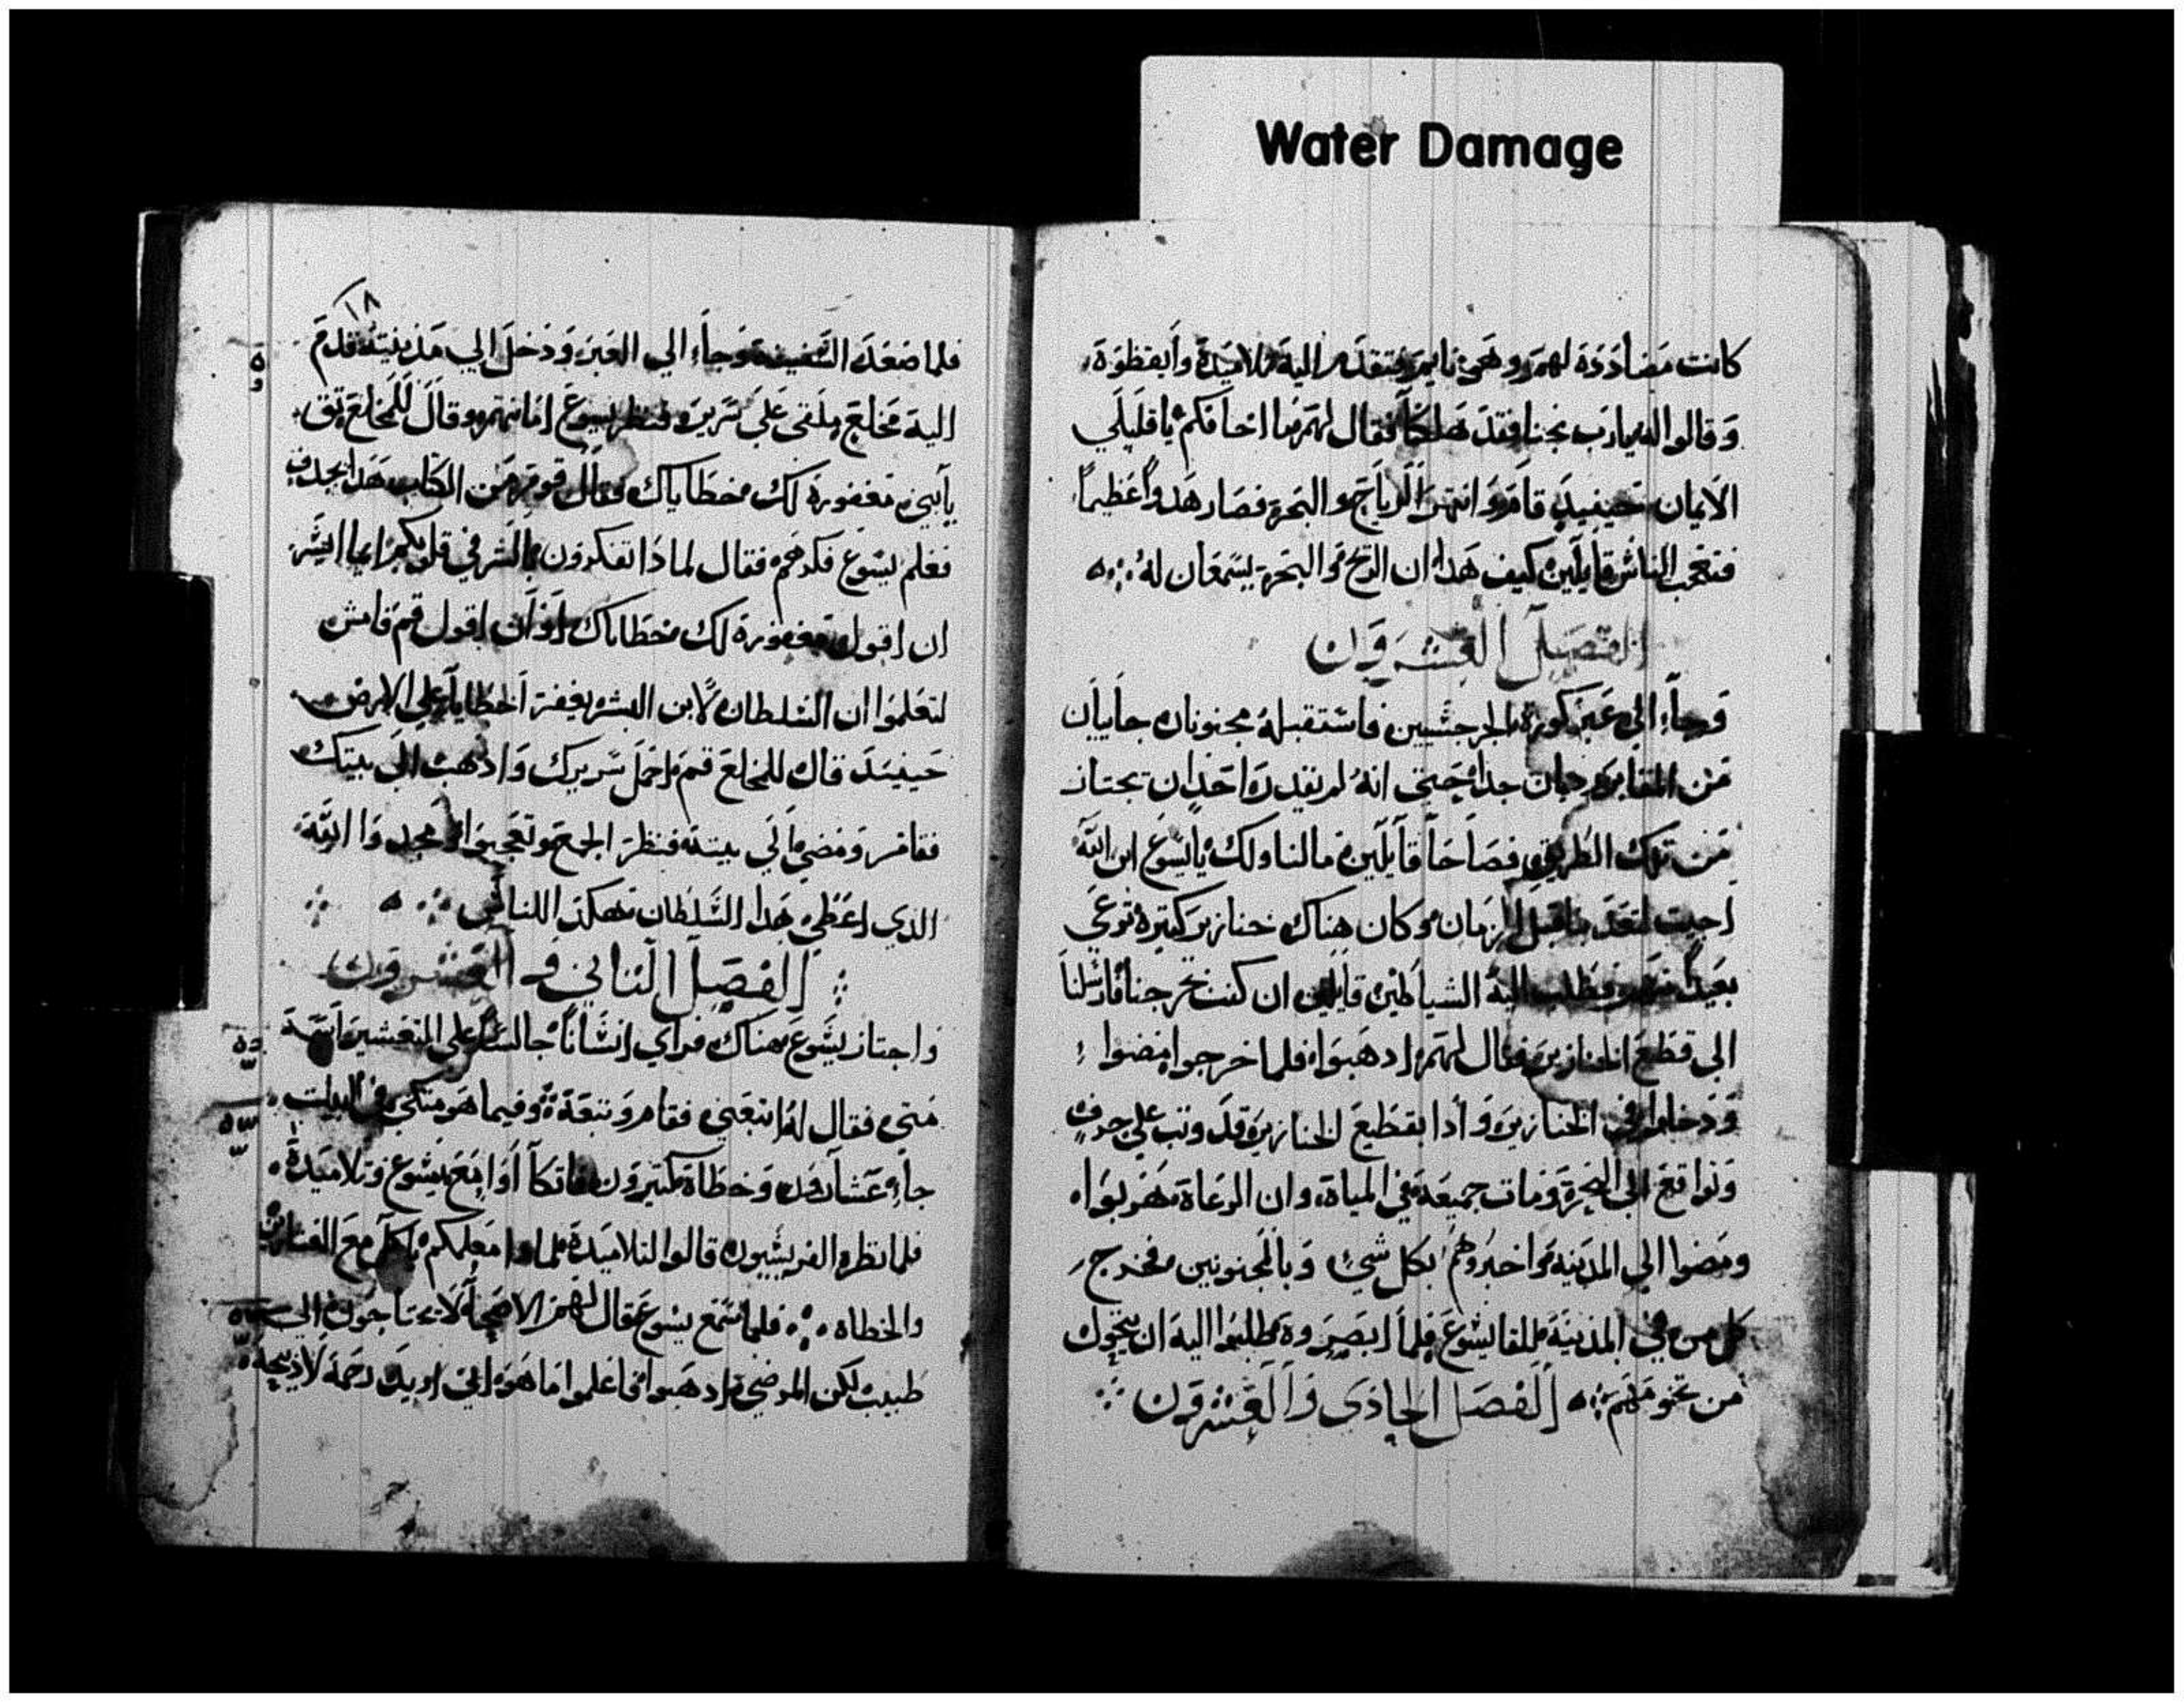 Water Damage
كانت مضادده لهم وهو نايم فتقدم اليه تلاميده وايقظوه
وقالوا له يارب نجنا فقد هلكنا فقال لهم ما اخافكم يا قليلي
الايمان حينيد قام وانتهر الرياح والبحر فصار هدوا عظيما
فتعجب الناس قايلين كيف هدا ان الريح والبحر يسمعان له
الفصل العشرون
وجاء الى عبر كورة الجرجسيين فاستقبله مجنونان جاييان
من المقابر جدا حتى انه لم يقدر احد ان يجتاز
من تلك الطريق فصاحا قايلين ما لنا ولك يا يسوع ابن الله
اجيت لتعد بنا قبل الزمان وكان هناك خنازير كثيرة ترعى
بعيدا منهم فطلب اليه الشياطين قايلين ان كنت تخرجنا فارسلنا
الى قطيع الخنازير فقال لهم ادهبوا فلما خرجوا مضوا
ودخلوا في الخنازير وادا بقطيع الخنازير قد وتب على جرف
وتواقع الى البحرة ومات جميعه في المياة وان الرعاة هربوا
ومضوا الى المدينة واخبروهم بكل شي وبالمجنونين فخرج
كل من في المدينة للقا يسوع فلما ابصروه طلبوا اليه ان يتحول
من تخومهم الفصل الحادي والعشرون
١٨
فلما صعد السفينة وجاء الى العبر ودخل الى مدينته قدم
اليه مخلع ملقى على سرير فنظر يسوع امانتهم وقال للمخلع تق
يابني مغفورة لك خطاياك فقال قوم من الكتاب هدا يجدف
فعلم يسوع فكرهم فقال لمادا تفكرون بالشر في قلوبكم ايما اليسر
ان اقول مغفورة لك خطاياك او ان اقول قم فامش
لتعلموا ان السلطان لابن البشر يغفر الخطايا على الارض
حينيد قال للمخلع قم احمل سريرك وادهب الى بيتك
فقام ومضى الى بيته فنظر الجمع وتعجبوا ومجدوا الله
الدي اعطى هدا السلطان هكدا للناس
الفصل التاني والعشرون
واجتاز يسوع هناك فراي انسانا جالسا على التعشير اسمه
متى فقال له اتبعني فقام وتبعه وفيما هو متكي في البيت
جاء عشارون وخطاة كتيرون فاتكاوا مع يسوع وتلاميده
فلما نظر الفريسيون قالوا لتلاميده لمادا معلمكم ياكل مع العشارين
والخطاه فلما سمع يسوع قال لهم الاصحا لا يحتاجون الى
طبيب لكن المرضى ادهبوا فاعلموا ما هو اني اريد رحمة لا دبيحة